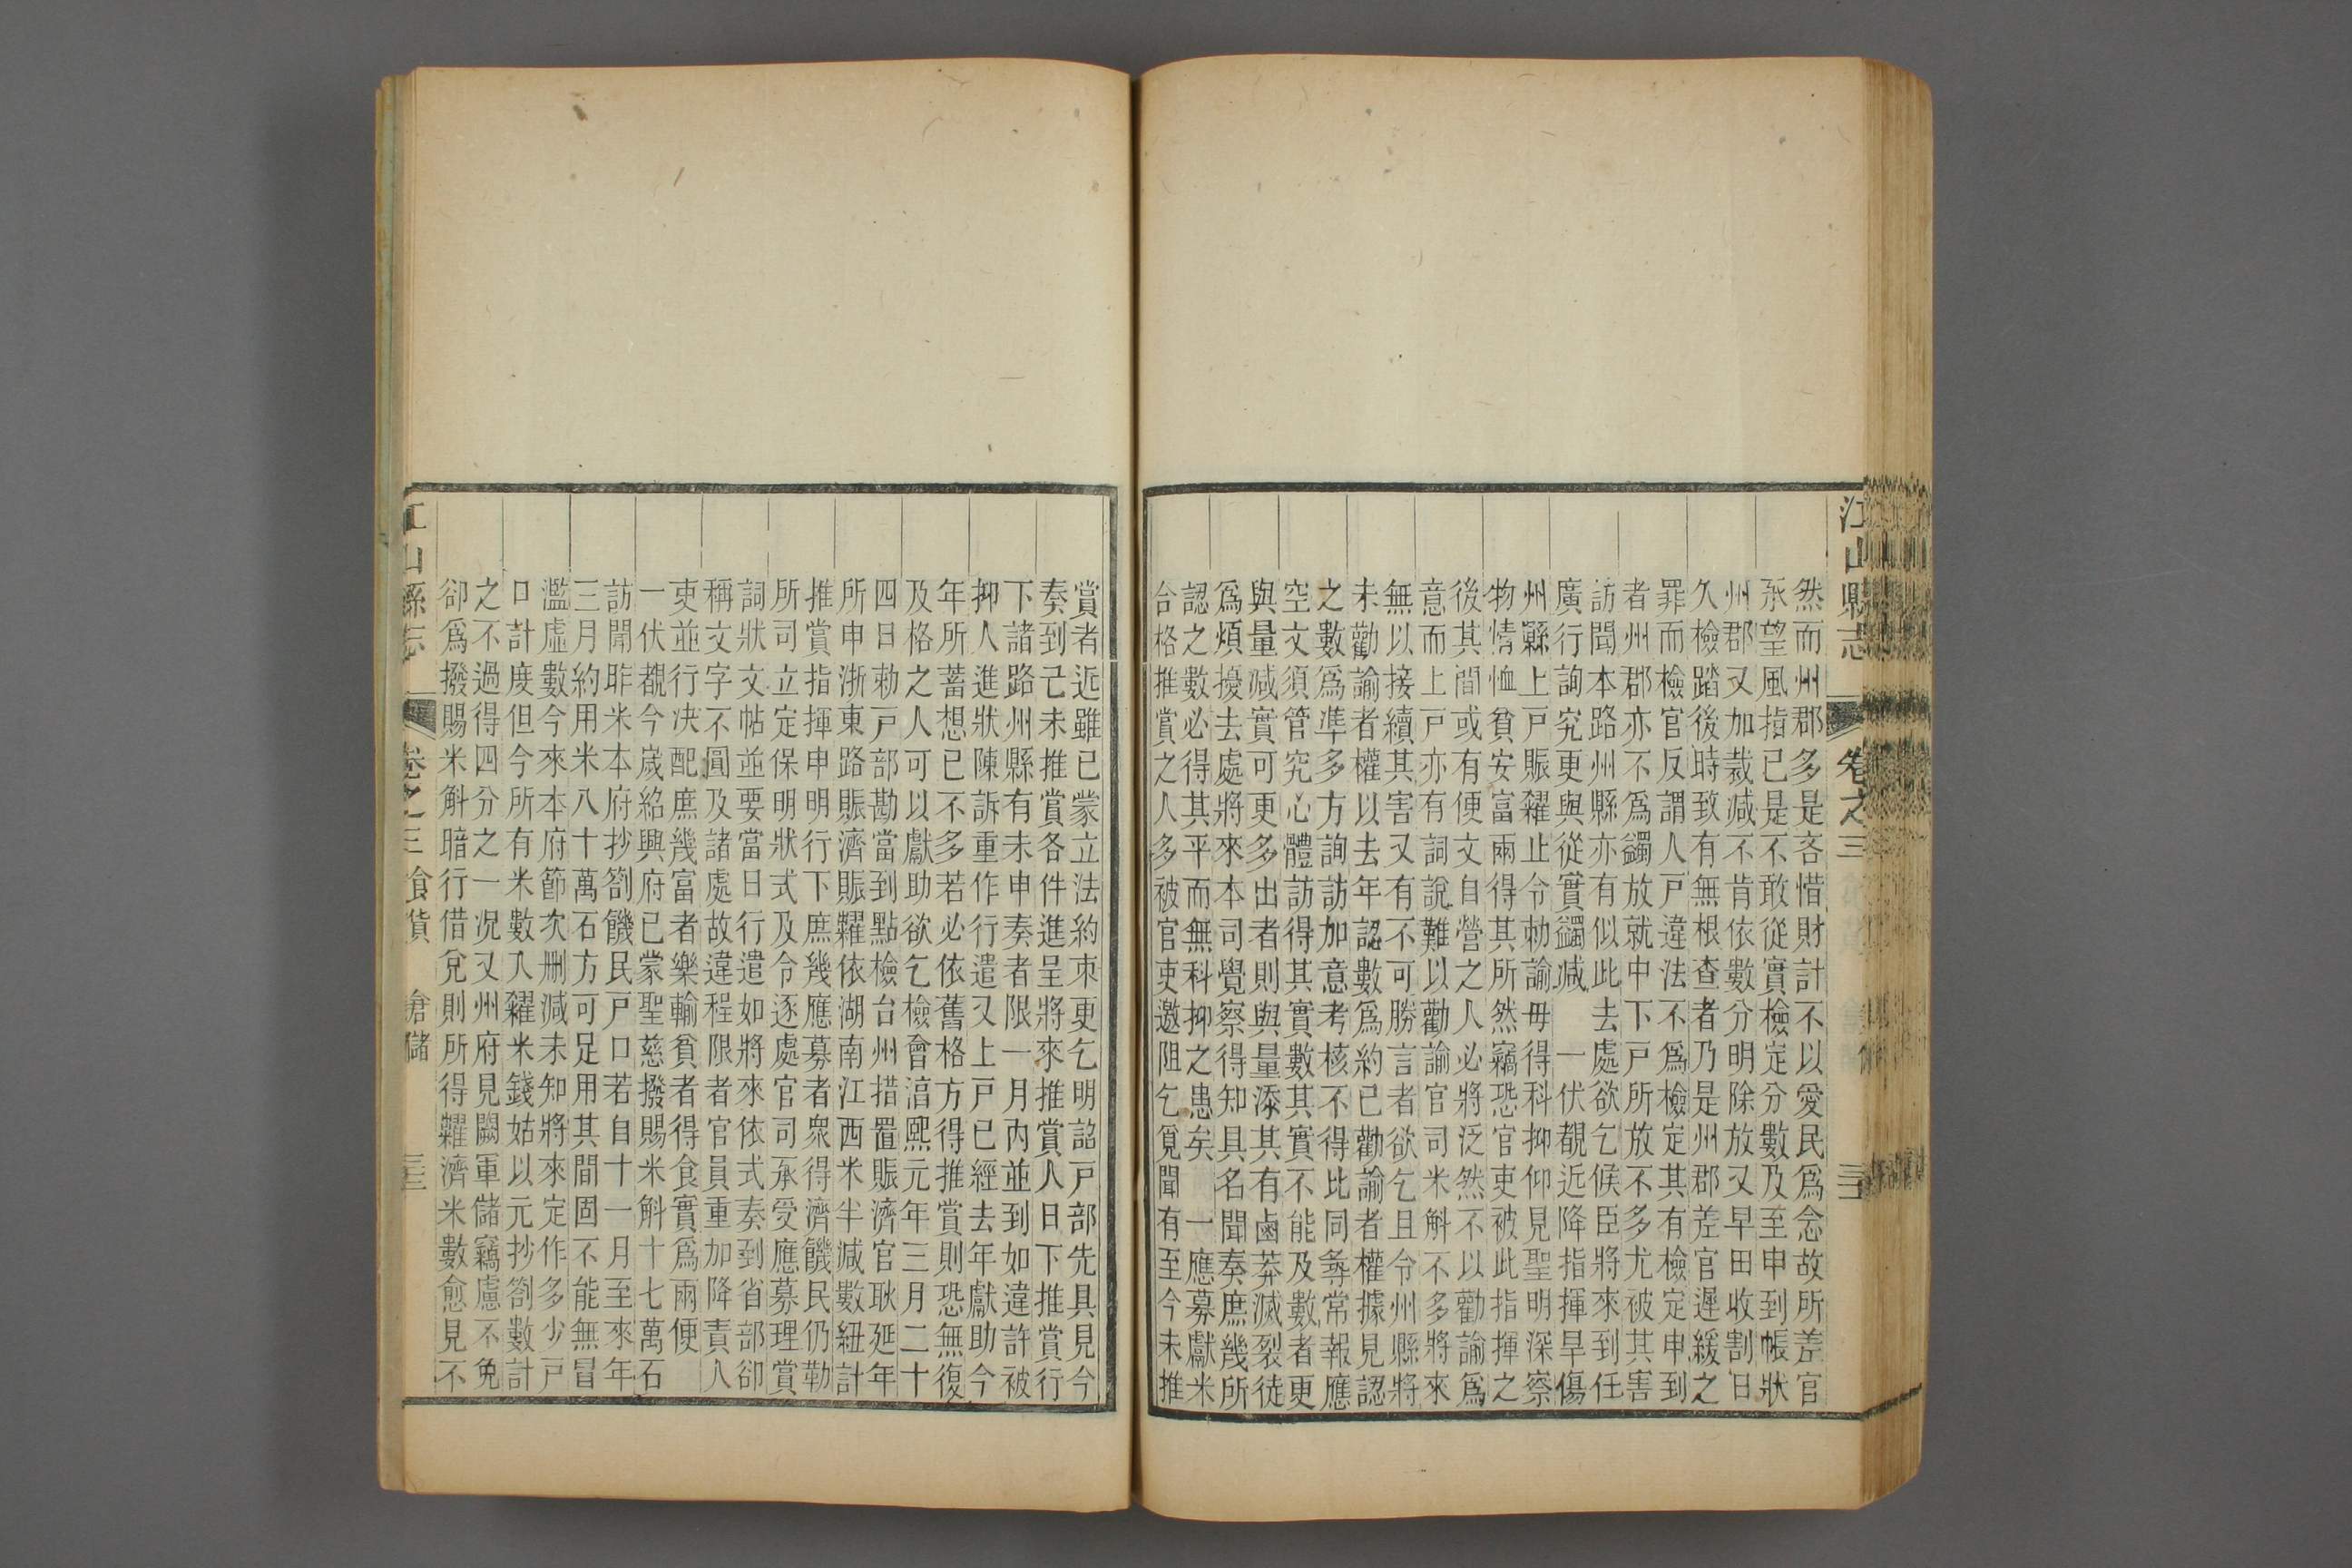 江山縣志
卷之三
三二
然而州郡多是吝惜財計不以愛民爲念故所差官
承望風指已是不敢從實檢定分數及至申到帳狀
州郡又加裁減不肯依數分明除放又早田收割日
久檢踏後時致有無根查者乃是州郡差官遲緩之
罪而檢官反謂人戸違法不爲檢定其有檢定申到
者州郡亦不爲蠲放就中下戸所放不多尤被其害
訪聞本路州縣亦有似此去處欲乞候臣將來到任
廣行詢究更與從實蠲減　一伏覩近降指揮旱傷
州縣上戸賑糶止令勅諭毋得科抑仰見聖明深察
物情恤貧安富兩得其所然竊恐官吏被此指揮之
後其間或有便文自營之人必將泛然不以勸諭爲
意而上戸亦有詞說難以勸諭官司米斛不多將來
無以接續其害又有不可勝言者欲乞且令州縣將
未勸諭者權以去年認數爲約已勸諭者權據見認
之數爲準多方詢訪加意考核不得比同彝常報應
空文須管究心體訪得其實數其實不能及數者更
與量減實可更多出者則與量添其有鹵莽滅裂徒
爲煩擾去處將來本司覺察得知具名聞奏庶幾所
認之數必得其平而無科抑之患矣　一應募獻米
合格推賞之人多被官吏邀阻乞覓聞有至今未推
賞者近雖已蒙立法約束更乞明詔戸部先具見今
奏到已未推賞各件進呈將來推賞人日下推賞行
下諸路州縣有未申奏者限一月内並到如違許被
抑人進狀陳訴重作行遣又上戸已經去年獻助今
年所蓄想已不多若必依舊格方得推賞則恐無復
及格之人可以獻助欲乞檢會湻熙元年三月二十
四日勅戸部勘當到點檢台州措置賑濟官耿延年
所申浙東路賑濟賑糶依湖南江西米半減數紐計
推賞指揮申明行下庶幾應募者衆得濟饑民仍勒
所司立定保明狀式及令逐處官司承受應募理賞
詞狀文帖並要當日行遣如將來依式奏到省部卻
稱文字不圓及諸處故違程限者官員重加降責人
吏並行决配庶幾富者樂輸貧者得食實爲兩便
一伏覩今歲紹興府已蒙聖慈撥賜米斛十七萬石
訪聞昨米本府抄劄饑民戸口若自十一月至來年
三月約用米八十萬石方可足用其間固不能無冒
濫虛數今來本府節次刪減未知將來定作多少戸
口計度但今所有米數入糶米錢姑以元抄劄數計
之不過得四分之一況又州府見闕軍儲竊慮不免
卻爲撥賜米斛暗行借兌則所得糶濟米數愈見不
江山縣志
卷之三食貨　倉儲
三三